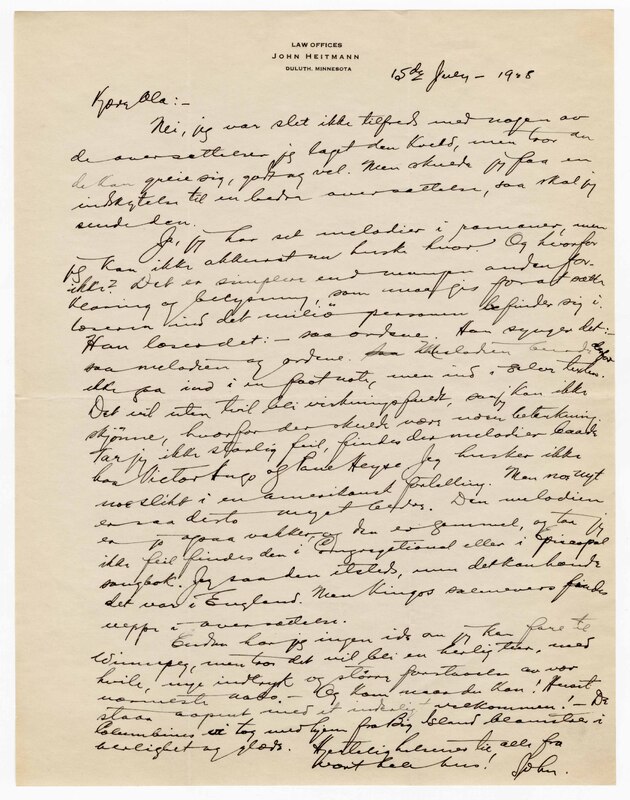 LAW OFFICES
JOHN HEITMANN
DULUTH, MINNESOTA
15de July – 1928
Kjære Ola:–
Nei, jeg var slet ikke tilfreds med nogen av
de oversættelser jeg laget den kveld, men tror du
de kan greie sig, godt og vel. Men skulde jeg faa en
indskytelse til en bedre oversættelse, saa skal jeg
sende den.
Ja, jeg har set melodier i romaner, men
jeg kan ikke akkurat nu huske hvor. Og hvorfor
ikke? Det er simplere end mangen anden for-
klaring og belysning, som maa gis for at sætte
læseren ind i det miliö personen befinder sig i.
Han læser det:– saa ordene. Han synger det:–
saa melodien og ordene. Melodien derfor
ikke paa ind i en foot note, men ind i selve teksten.
Det vil uten tvil bli virkningsfuldt, saa jeg kan ikke
skjønne, hvorfor der skulde være noen betænkning.
Tar jeg ikke storlig feil, findes der melodier baade
hos Victor Hugo og Paul Heyse. Jeg husker ikke
noe slikt i en amerikansk fortelling. Men noe nyt
er saa desto meget bedre. Den melodien
er jo ogsaa vakker, den er gammel, og tar jeg
ikke feil findes den i Congregational eller i Episcopal
sangbok. Jeg saa den etsteds, men det kan hænde
det var i England. Men Kingos salmevers findes
neppe i oversættelse.
Endnu har jeg ingen ide om jeg kan fare til
Winnipeg, men tror det vil bli en herlig tur, med
hvile, nye indtryk og større forstaaelse av vor
nærmeste nabo. – Og kom naar du kan! Huset
staar aapent med et inderlig velkommen! – De
Columbines vi tog med hjem fra Big Island blomstrer i
herlighet og glæde. Hjertelig hilsen til alle fra
vort hele hus! John.